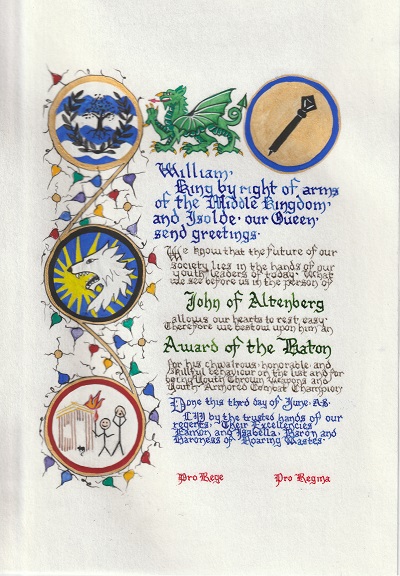 William,
King by right of arms
of the Middle Kingdom,
and Isolde, our Queen,
send greetings.
We know that the future of our
society lies in the hands of our
youth leaders of today. What
we see before us in the person of
John of Altenberg
allows our hearts to rest easy.
Therefore we bestow upon him an
Award of the Baton
for his chivalrous, honorable and
skillful behaviour on the list and for
being Youth Thrown Weapons and
Youth Armored Combat Champion
Done this third day of June, A.S.
LII by the trusted hands of our
regents, Their Excellencies
Eamon and Isabella, Baron and
Baroness of Roaring Wastes.
Pro Rege Pro Regina